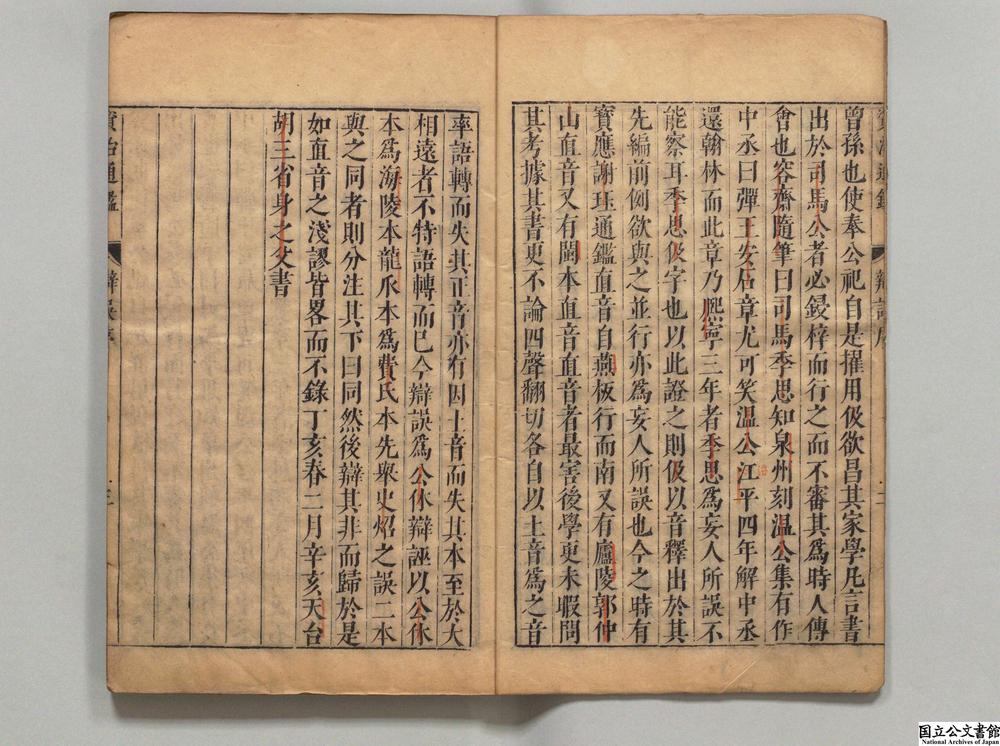 曾孫也使奉公祀自是擢用伋欲昌其家學凡言書
出於司馬公者必鋟梓而行之而不審其為時人傳
會也容齋隨筆曰司馬季思知泉州刻溫公集有作
中丞曰彈王安石章尤可笑溫公江平四年解中丞
還翰林而此章乃熈寧三年者季思為妄人所誤不
能察耳季思伋字也以此證之則伋以音釋出於其
先編前例欲與之並行亦為妄人所誤也今之時有
寶應謝珏通鑑直音自燕板行而南又有廬陵郭仲
山直音又有閩本直音直音者最害後學更未暇問
其考據其書更不論四聲翻切各自以土音為之音
率語轉而失其正音亦有因土音而失其本至於大
相遠者不特語轉而已今辯誤為公休辯誣以公休
本為海陵本龍爪本為費氏本先舉史炤之誤二本
與之同者則分注其下曰同然後辯其非而歸於是
如直音之淺謬皆畧而不錄丁亥春二月辛亥天台
胡三省身之父書
資治通鑑
辯誤序
三
資治通鑑
辯誤序
二
国立公文書館
National Archives of Japan